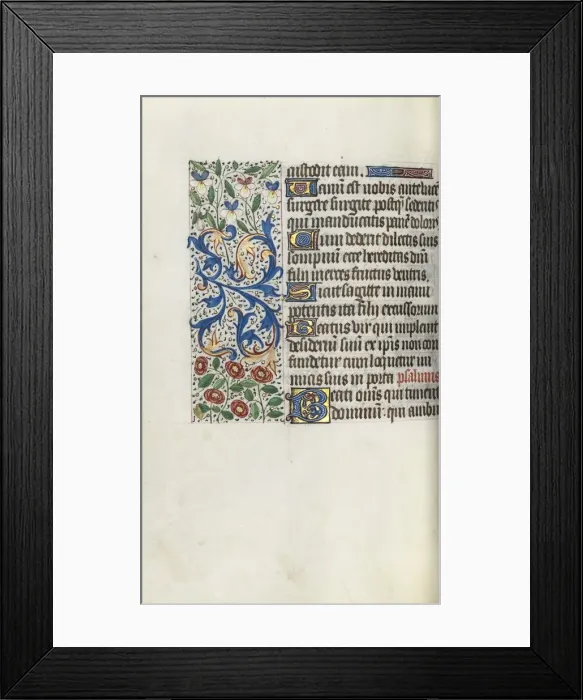 custodit eam.
Vanum est vobis ante luce
surgere surgite postq̄ sederitis
qui manducatis panē dolori
Cum dederit dilectis suis
sompnum ecce hereditas dn̄i
filii merces fructus ventris.
Sicut sagitte in manu
potentis ita filii excussorum
Beatus vir qui implevit
desiderium suum ex ipsis non con
fundetur cum loquetur ini
micis suis in porta psalmus
Beati om̄s qui timent
dominum: qui ambu